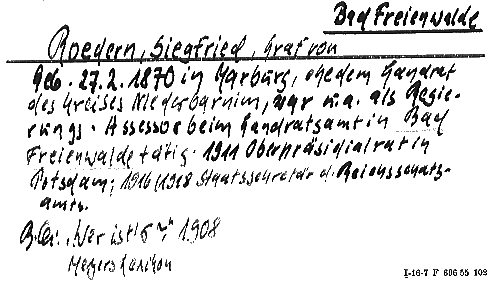 Bad Freienwalde
Roedern, Siegfried, Graf von
Geb. 27.2.1870 in Marburg, ehedem Landrat
des Kreises Niederbarnim, war u.a. als Regie-
rungs-Assessor beim Landratsamt in Bad
Freienwalde tätig. 1911 Oberpräsidialrat in
Potsdam; 1916/1918 Staatssekretär d. Reichsschatz-
amts.
"Wer ist's?" 1908
Meyers Lexikon
I-16-7 F 606 55 102